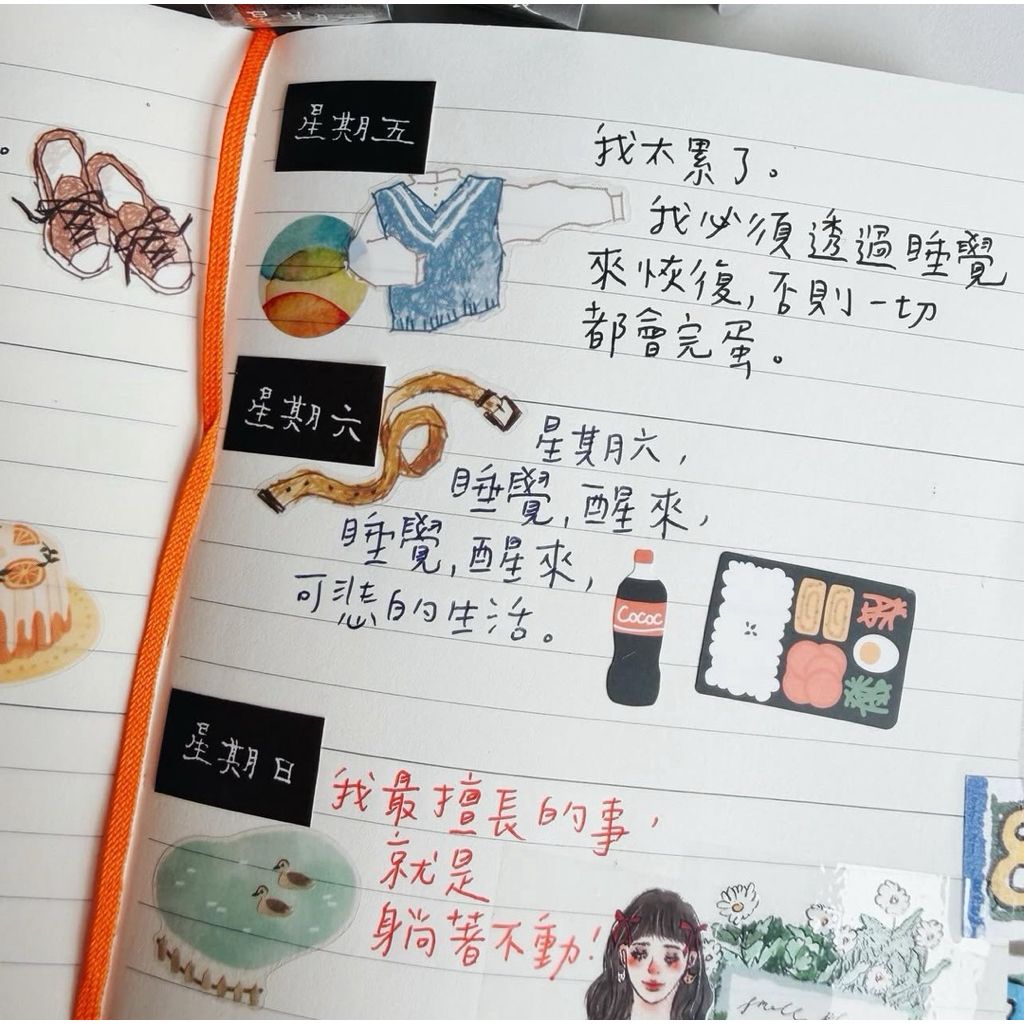 星期五
我太累了。
我必須透過睡覺
來恢復,否則一切
都會完蛋。
星期六
星期六,
睡覺,醒來,
睡覺,醒來,
可悲的生活。
Cococ
星期日
我最擅長的事,
就是
躺著不動!